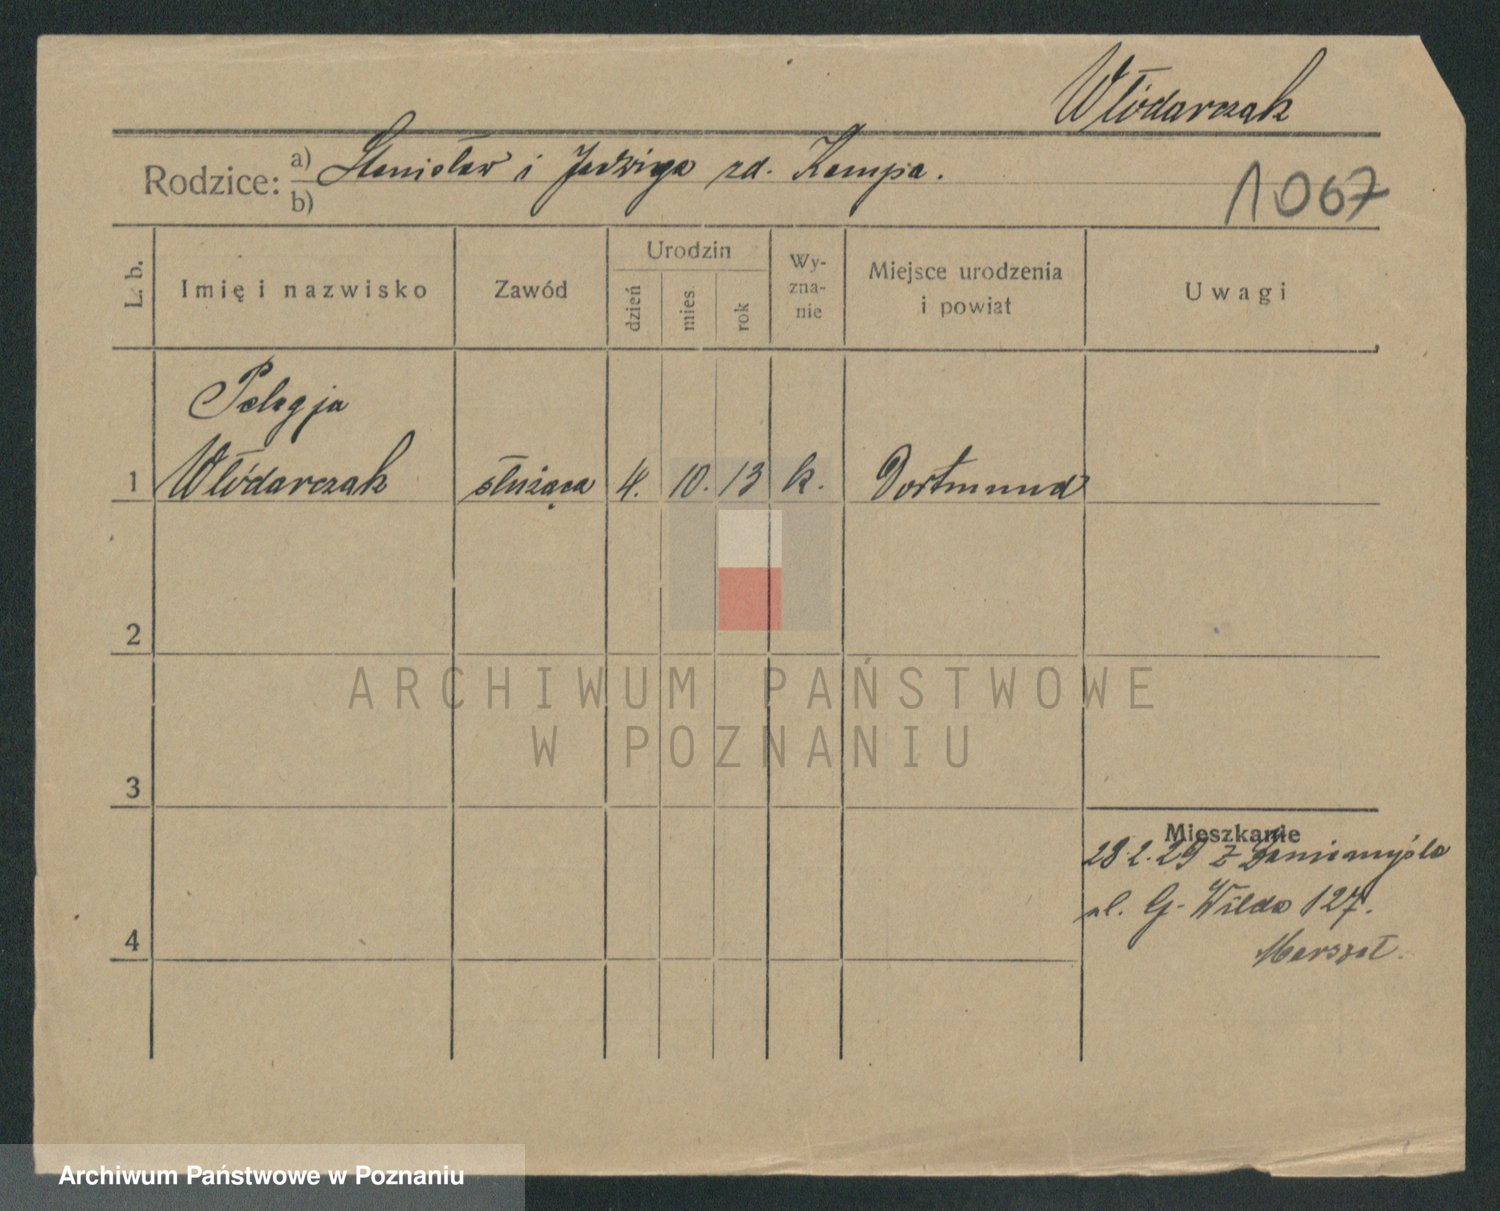 Włódarczak
Rodzice: a) Stanisław i Jadwiga zd. Kempa.
b)
1067
L. b.
Imię i nazwisko
Zawód
Urodzin
dzień
mies.
rok
Wy-
zna-
nie
Miejsce urodzenia
i powiat
Uwagi
Pelagja
1 Włódarczak służąca 4. 10. 13 k. Dortmund
2
ARCHIWUM PAŃSTWOWE
W POZNANIU
3
Mieszkanie
28.2.29 z Zaniemyśla
ul. G. Wilda 127.
Marszał.
4
Archiwum Państwowe w Poznaniu